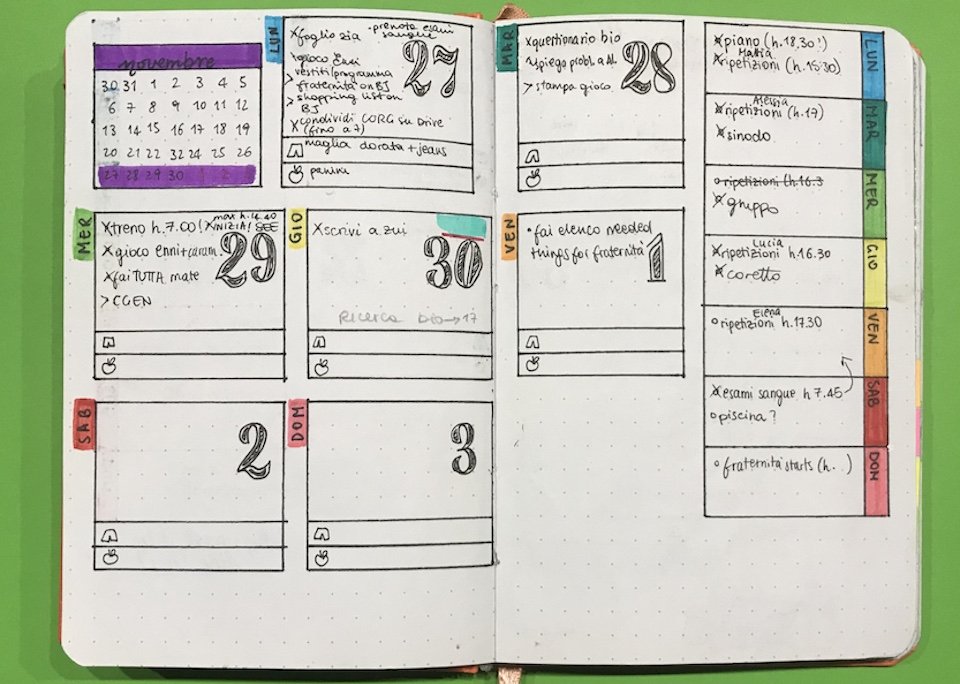 novembre
30 31 1 2 3 4 5
6 7 8 9 10 11 12
13 14 15 16 17 18 19
20 21 22 32 24 25 26
27 28 29 30 1 2
LUN
27
xfoglio zia •prenota esami
sangue
gioco Enni
vestiti/programma
>fraternità on BJ
>shopping list on
BJ
xcondividi CORG su Drive
(fino a 7)
maglia dorata + jeans
panini
MAR
28
xquestionario bio
spiego probl. a Al
>stampa gioco
MER
29
xtreno h.7.00! xmax h.14.40
INIZIA! SEE
xgioco Enni+caram.
xfai TUTTA mate
>CGEN
GIO
30
xscrivi a zui
Ricerca bio→17
VEN
1
•fai elenco needed
things for fraternità
SAB
2
DOM
3
LUN
xpiano (h.18,30!)
Mattia
xripetizioni (h.15:30)
MAR
Alessia
xripetizioni (h.17)
xsinodo
MER
o ripetizioni (h.16.3
xgruppo
GIO
Lucia
xripetizioni h.16.30
xcoretto
VEN
Elena
o ripetizioni h.17.30
SAB
xesami sangue h 7.45
o piscina?
DOM
o fraternità starts (h. )